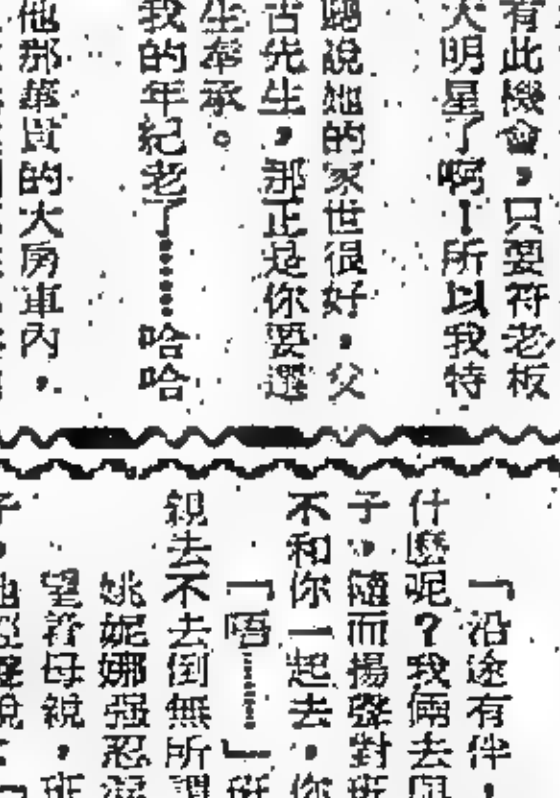 有此機會，只要符老板
大明星了啊！所以我特
說她的家世很好，父
古先生，那正是你要選
生奉承。
我的年紀老了……哈哈
他那華貴的大房車內，
「沿途有伴，
什麼呢？我倆去與
子，隨而揚聲對班
不和你一起去，你
「唔……」班
親去不去倒無所謂
姚妮娜強忍
望着母親，班